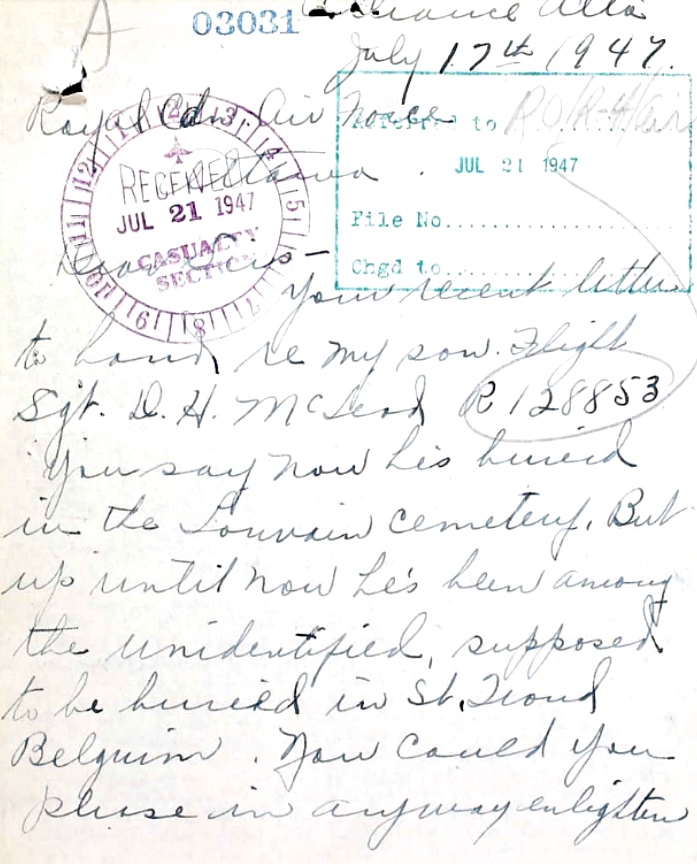 A
03031
Alliance Alta
July 17th 1947.
Royal Cdn. Air Force
Ottawa.
Referred to
JUL 21 1947
File No.
Chgd to
RECEIVED
JUL 21 1947
CASUALTY
SECTION
12 1 2 3 4 5 7 8 9 10 11
Dear Sirs –
Your recent letter
to hand, re my son. Flight
Sgt. D. H. McLeod R128853
You say now he's buried
in the Louvain cemetery. But
up until now he's been among
the unidentified, supposed
to be buried in St. Trond
Belguim. Now could you
please in anyway enlighten